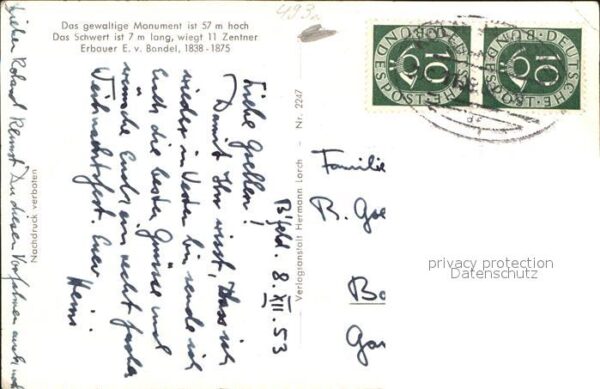 Das gewaltige Monument ist 57 m hoch
Das Schwert ist 7 m lang, wiegt 11 Zentner
Erbauer E. v. Bandel, 1838-1875
493
Lieber Roland
Du diesen
Nachdruck verboten
B'feld. 8. XII. 53
Liebe
Damit Ihr wisst, dass ich
wieder im Westen bin sende ich
Euch die besten Grüsse und
wünsche Euch ein recht
Weihnachtsfest. Euer
Heini
Verlagsanstalt Hermann Lorch - Nr. 2247
10
DEUTSCHE BUNDESPOST
10
DEUTSCHE BUNDESPOST
Familie
B. Goe
Bo
Gar
privacy protection
Datenschutz